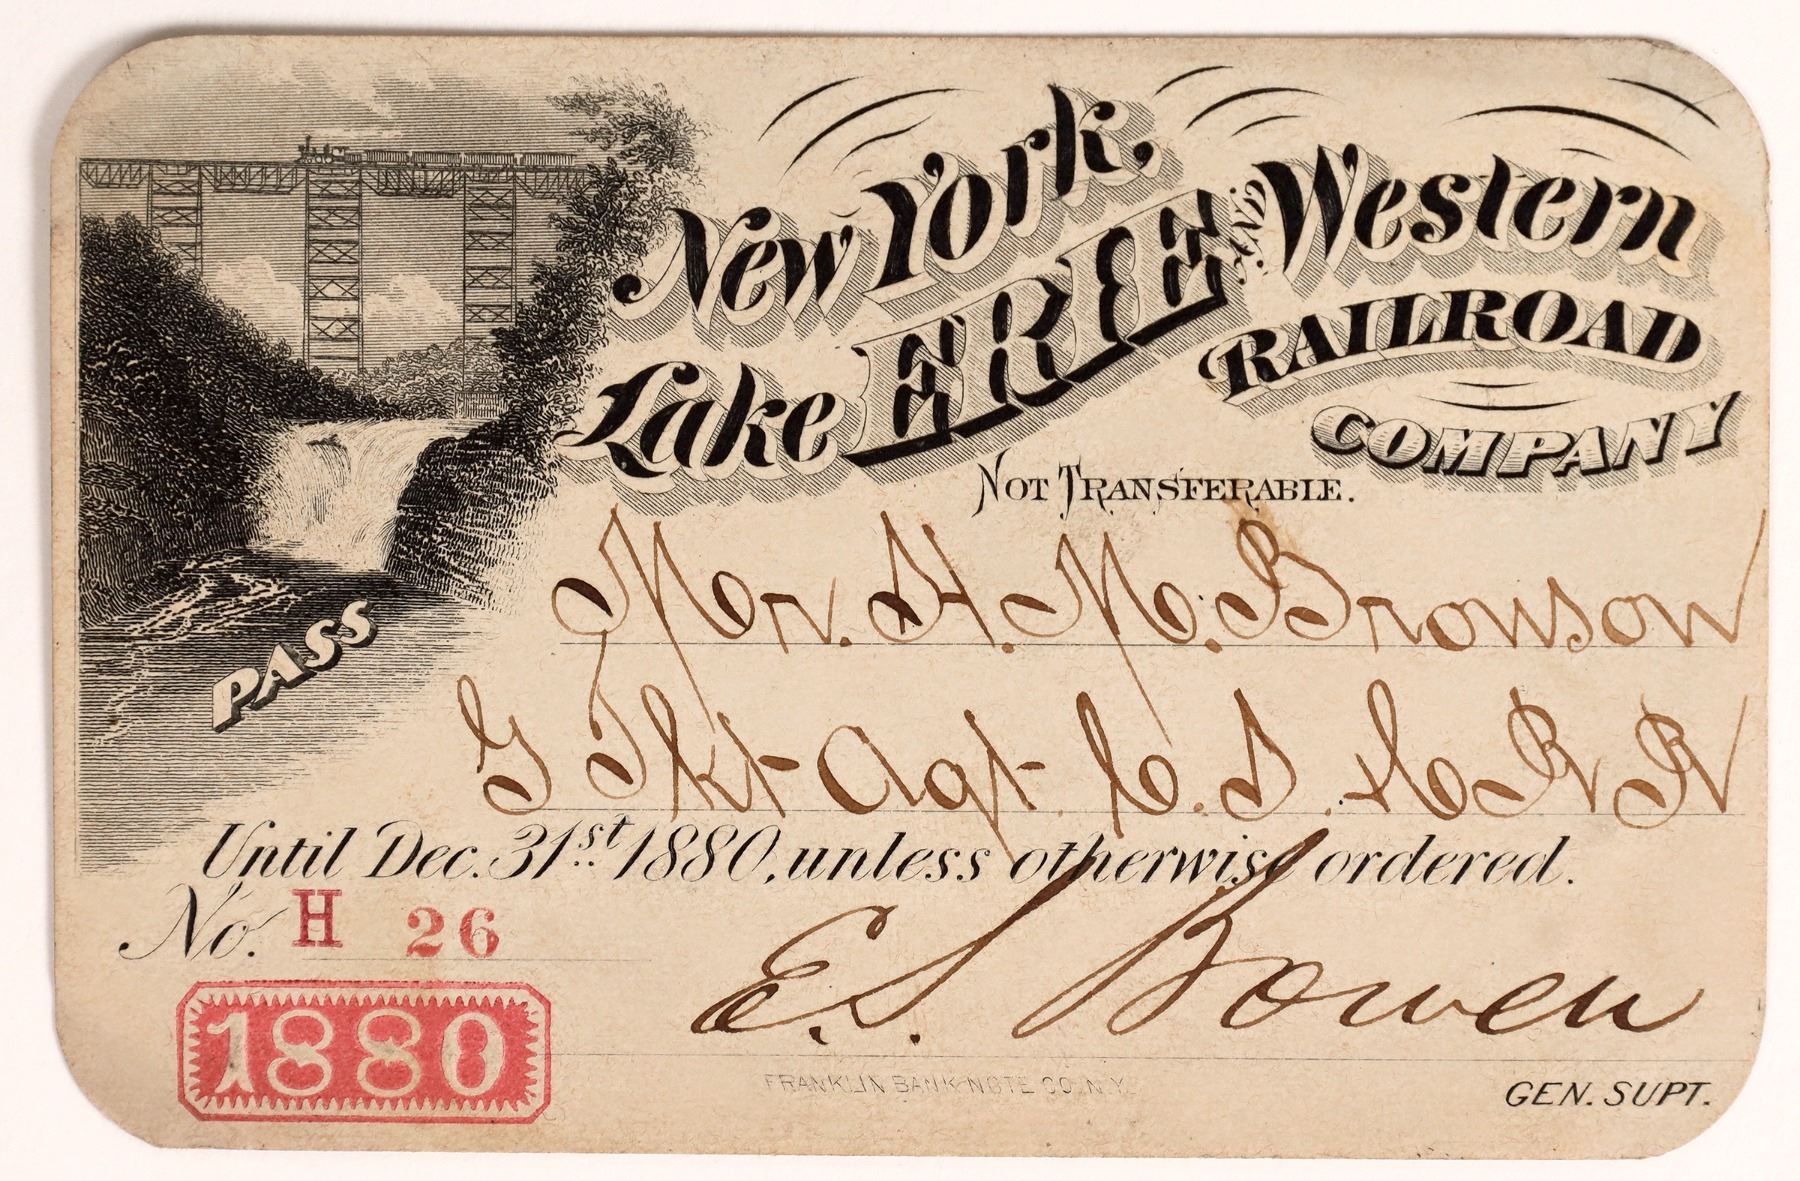 New York,
Lake ERIE AND Western
RAILROAD
COMPANY
NOT TRANSFERABLE.
PASS
Mr. H. M. Bronson
G Tkt Agt C. S. & C RR
Until Dec. 31st 1880, unless otherwise ordered.
No. H 26
E. S. Bowen
1880
FRANKLIN BANK NOTE CO. N.Y.
GEN. SUPT.